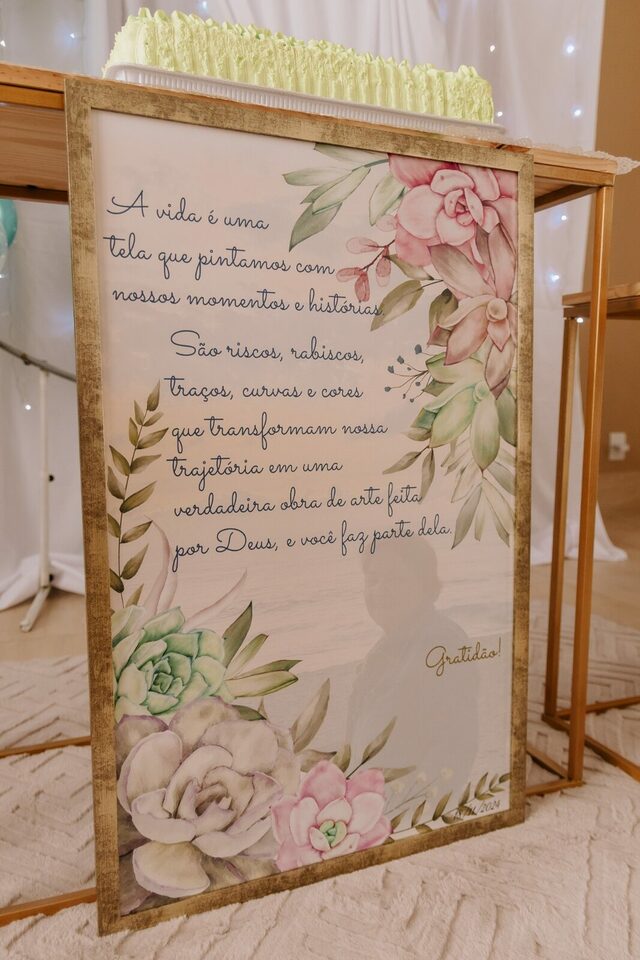 A vida é uma
tela que pintamos com
nossos momentos e histórias.
São riscos, rabiscos,
traços, curvas e cores
que transformam nossa
trajetória em uma
verdadeira obra de arte feita
por Deus, e você faz parte dela.
Gratidão!